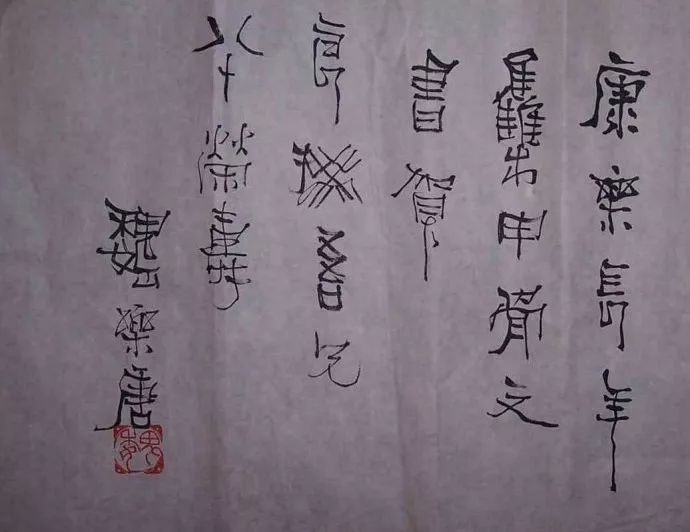 康樂長年
雧甲骨文
書賀
良吾兄
八十榮壽
魏樂唐